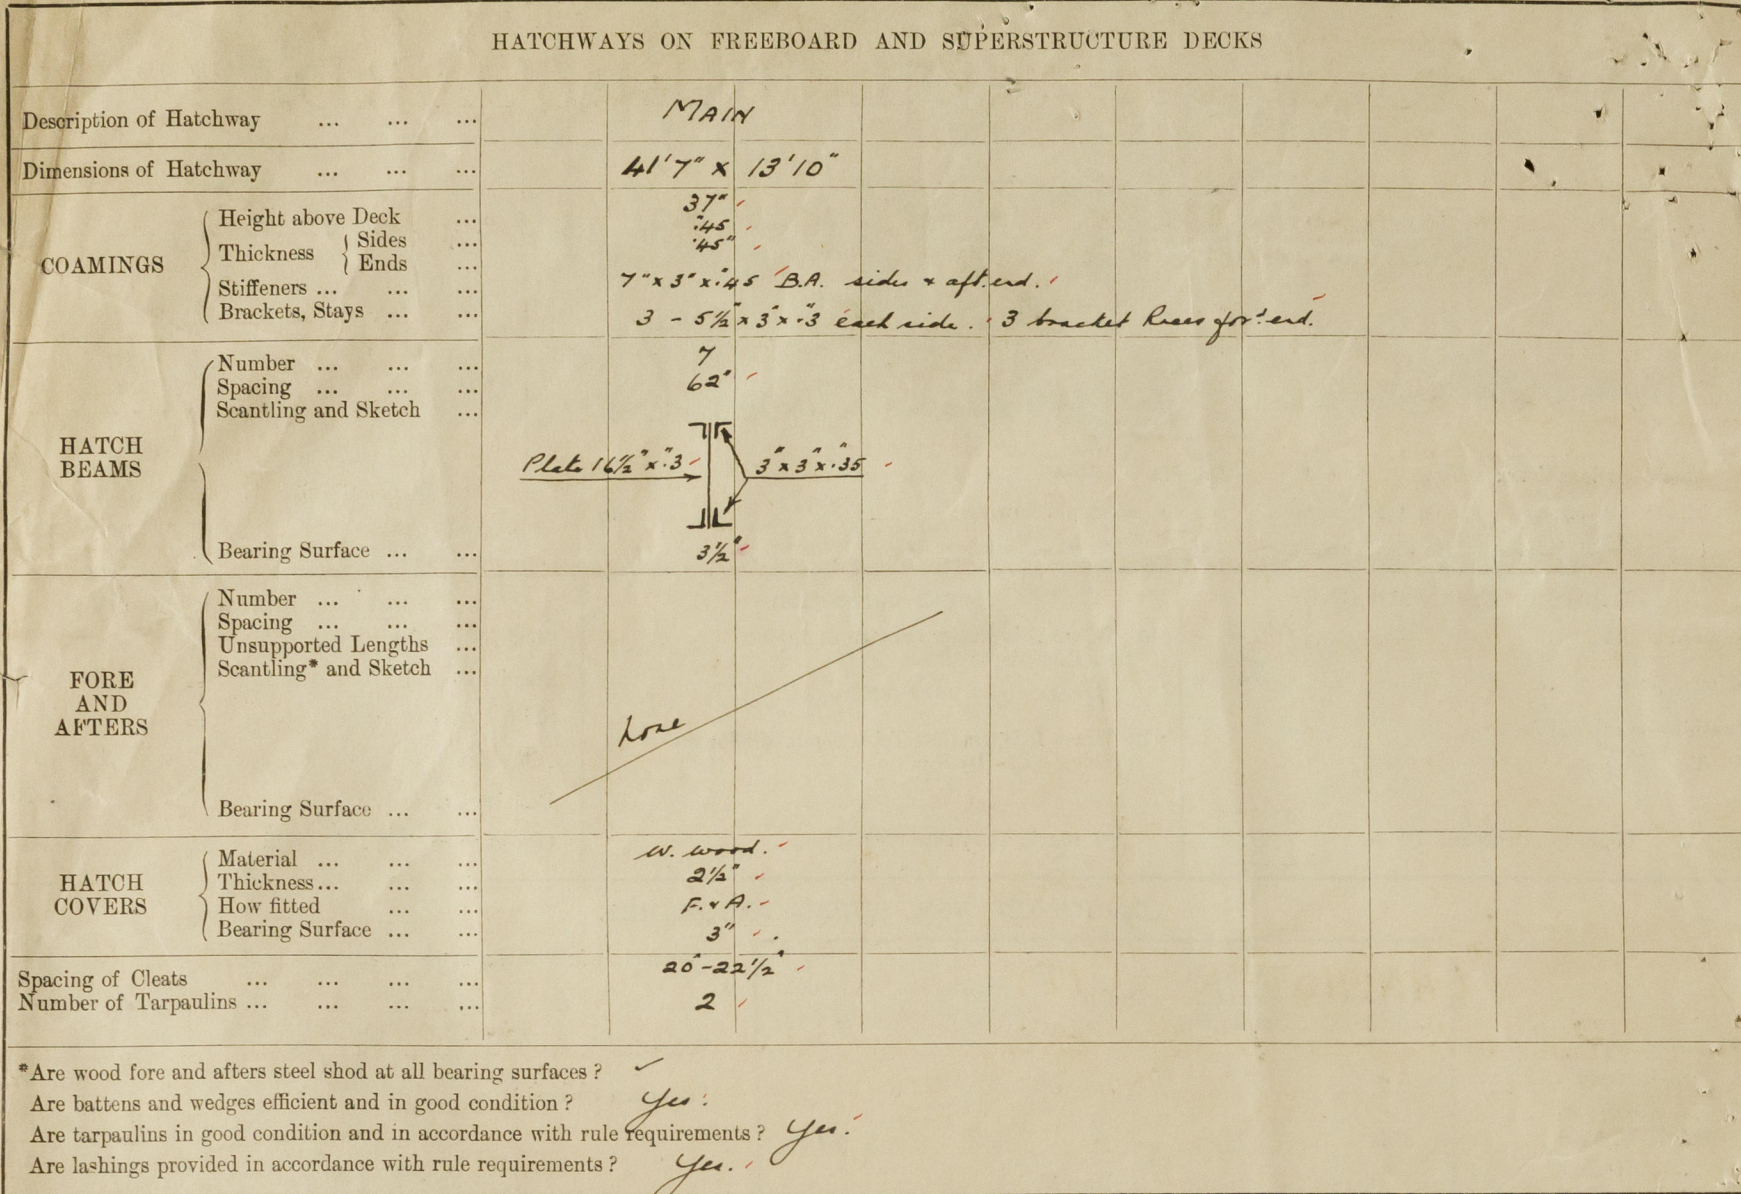 HATCHWAYS ON FREEBOARD AND SUPERSTRUCTURE DECKS
Description of Hatchway ... ... ... MAIN
Dimensions of Hatchway ... ... ... 41'7" x 13'10"
COAMINGS
Height above Deck ... 37"
Thickness
Sides ... ".45
Ends ... .45"
Stiffeners ... ... ... 7" x 3" x ".45 B.A. sides & aft. end.
Brackets, Stays ... ... 3 - 5½" x 3" x ".3 each side. 3 bracket knees for'd end.
HATCH BEAMS
Number ... ... ... 7
Spacing ... ... ... 62"
Scantling and Sketch ...
Plate 16½" x ".3 3" x 3" x ".35
Bearing Surface ... ... 3½"
FORE AND AFTERS
Number ... ... ...
Spacing ... ... ...
Unsupported Lengths ...
Scantling* and Sketch ...
none
Bearing Surface ... ...
HATCH COVERS
Material ... ... ... W. wood.
Thickness ... ... ... 2½"
How fitted ... ... F. & A.
Bearing Surface ... ... 3"
Spacing of Cleats ... ... ... ... 20" - 22½"
Number of Tarpaulins ... ... ... ... 2
*Are wood fore and afters steel shod at all bearing surfaces ? ✓
Are battens and wedges efficient and in good condition ? Yes.
Are tarpaulins in good condition and in accordance with rule requirements ? Yes.
Are lashings provided in accordance with rule requirements ? Yes.